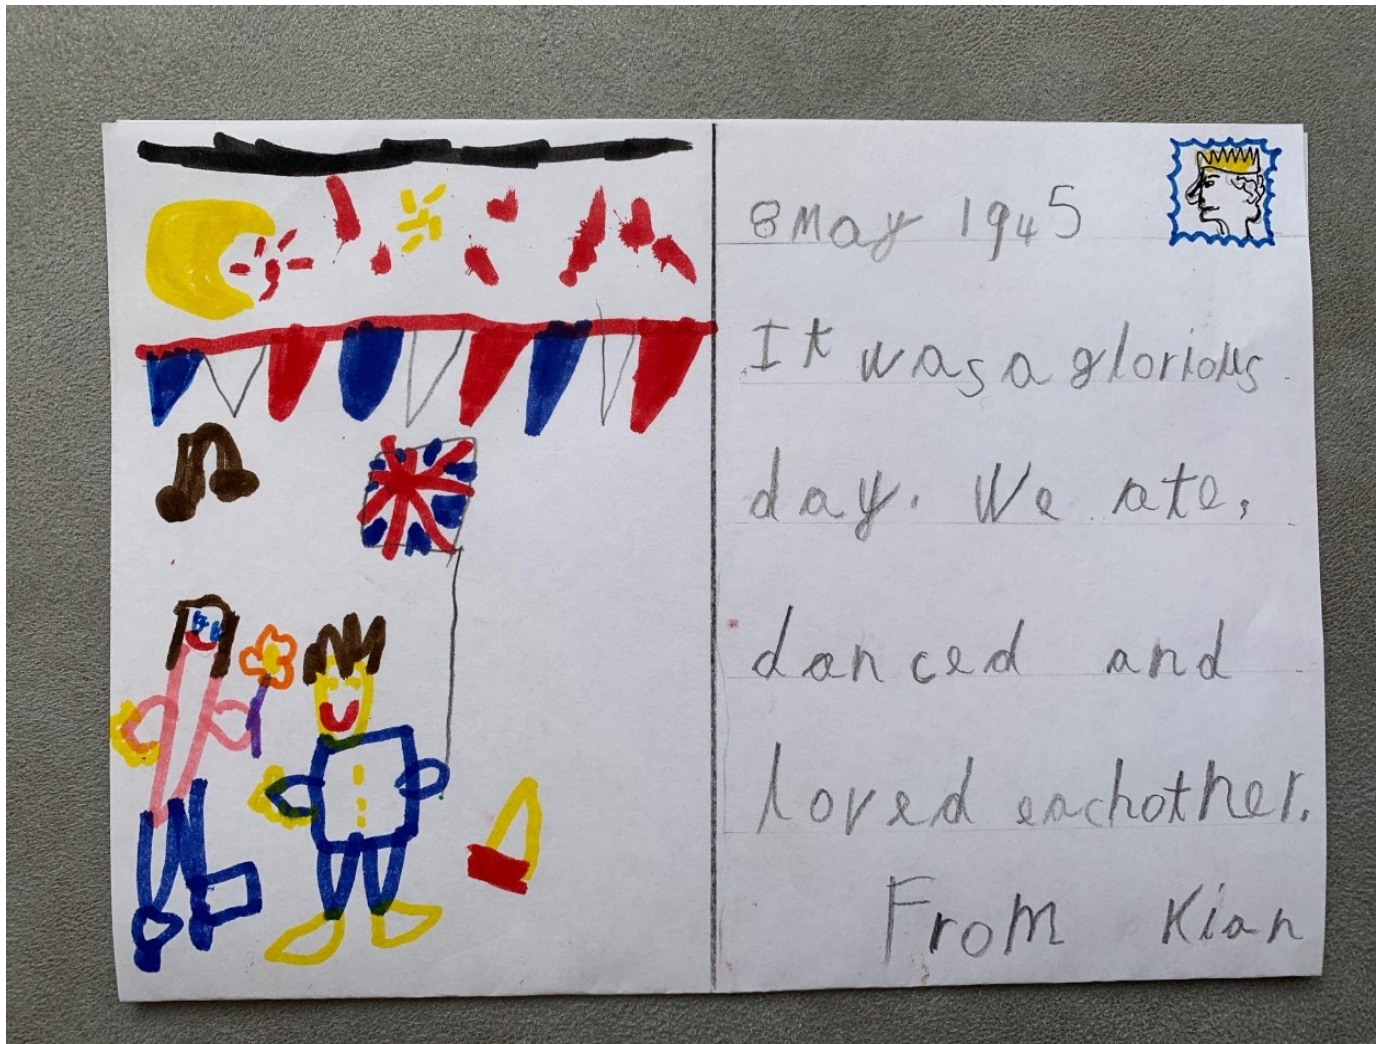 8 May 1945
It was a glorious
day. We ate,
danced and
loved eachother.
From Kian